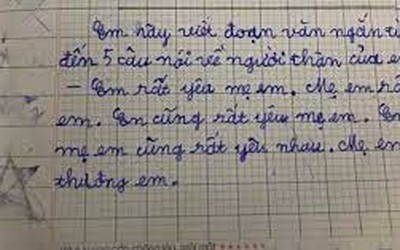 Em hãy viết đoạn văn ngắn từ
đến 5 câu nói về người thân của em
- Em rất yêu mẹ em. Mẹ em rất
em. Em cũng rất yêu mẹ em.
mẹ em cũng rất yêu nhau. Mẹ em
thương em.